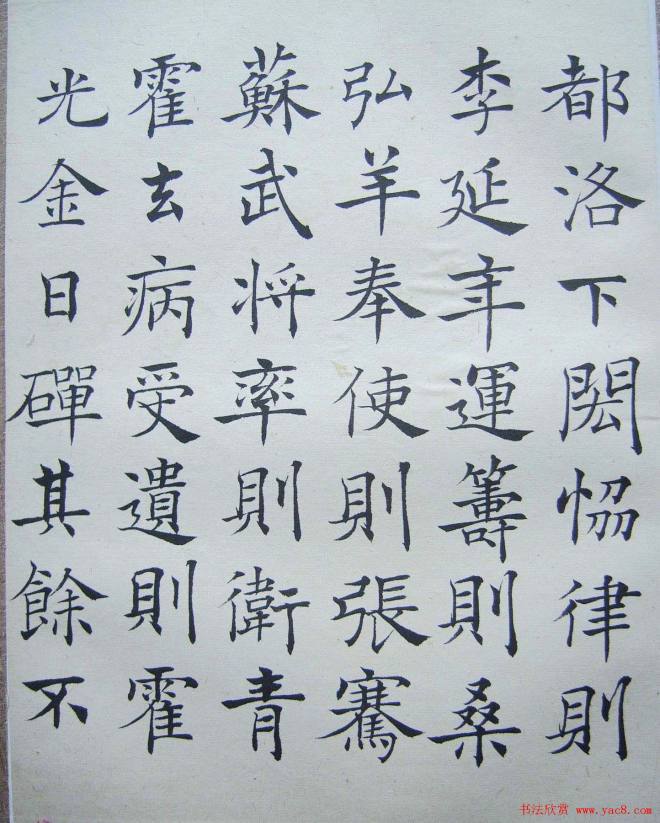 都洛下閎恊律則
李延年運籌則桑
弘羊奉使則張騫
蘇武將率則衛青
霍去病受遺則霍
光金日磾其餘不
书法欣赏 www.yac8.com